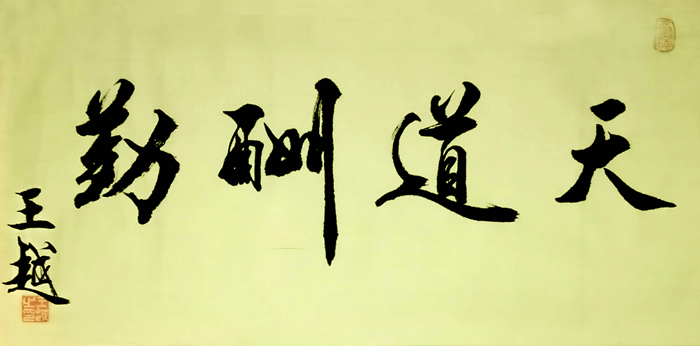 天道酬勤
王越